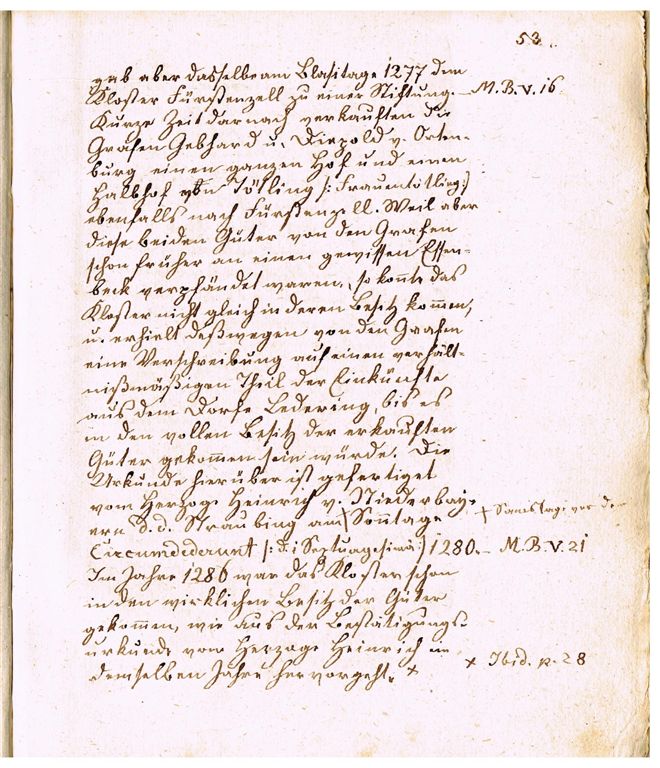 53.
gab aber dasselbe am Blasitage 1277 dem
Kloster Fürstenzell zu einer Stiftung. M.B.V. 16
Kurze Zeit darnach verkauften die
Grafen Gebhard u. Diepold v. Orten-
burg einen ganzen Hof und einen
Halbhof von Tötling /: Frauentötling :/
ebenfalls nach Fürstenzell. Weil aber
diese beiden Güter von den Grafen
schon früher an einen gewissen Essen-
beck verpfändet waren, so konnte das
Kloster nicht gleich in deren Besitz kommen,
u. erhielt deßwegen von den Grafen
eine Verschreibung auf einen verhält-
nißmäßigen Theil der Einkünfte
aus dem Dorfe Ledering, bis es
in den vollen Besitz der erkauften
Güter gekommen sein würde. Die
Urkunde hierüber ist gefertiget
vom Herzoge Heinrich v. Niederbay-
ern d.d. Straubing am + Sonntage + Samstage vor dem
Circumdederunt /: d. i. Septuagesimä :/ 1280. M.B.V. 21
Im Jahre 1286 war das Kloster schon
in den wirklichen Besitz der Güter
gekommen, wie aus der Bestätigungs-
urkunde vom Herzoge Heinrich in
demselben Jahre hervorgeht. × × Ibid. p. 28